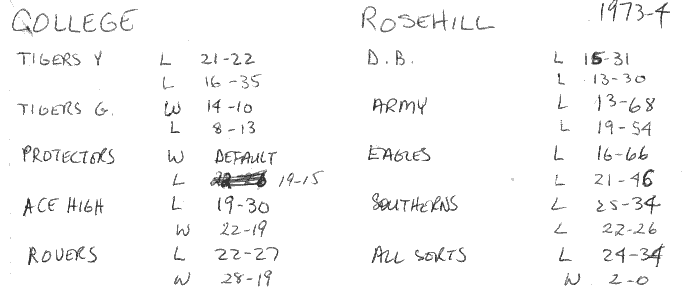 COLLEGE ROSEHILL 1973-4
TIGERS Y L 21-22 D.B. L 15-31
L 16-35 L 13-30
TIGERS G. W 14-10 ARMY L 13-68
L 8-13 L 19-54
PROTECTORS W DEFAULT EAGLES L 16-66
L 19-15 L 21-46
ACE HIGH L 19-30 SOUTHERNS L 25-34
W 22-19 L 22-26
ROVERS L 22-27 ALL SORTS L 24-34
W 28-19 W 2-0